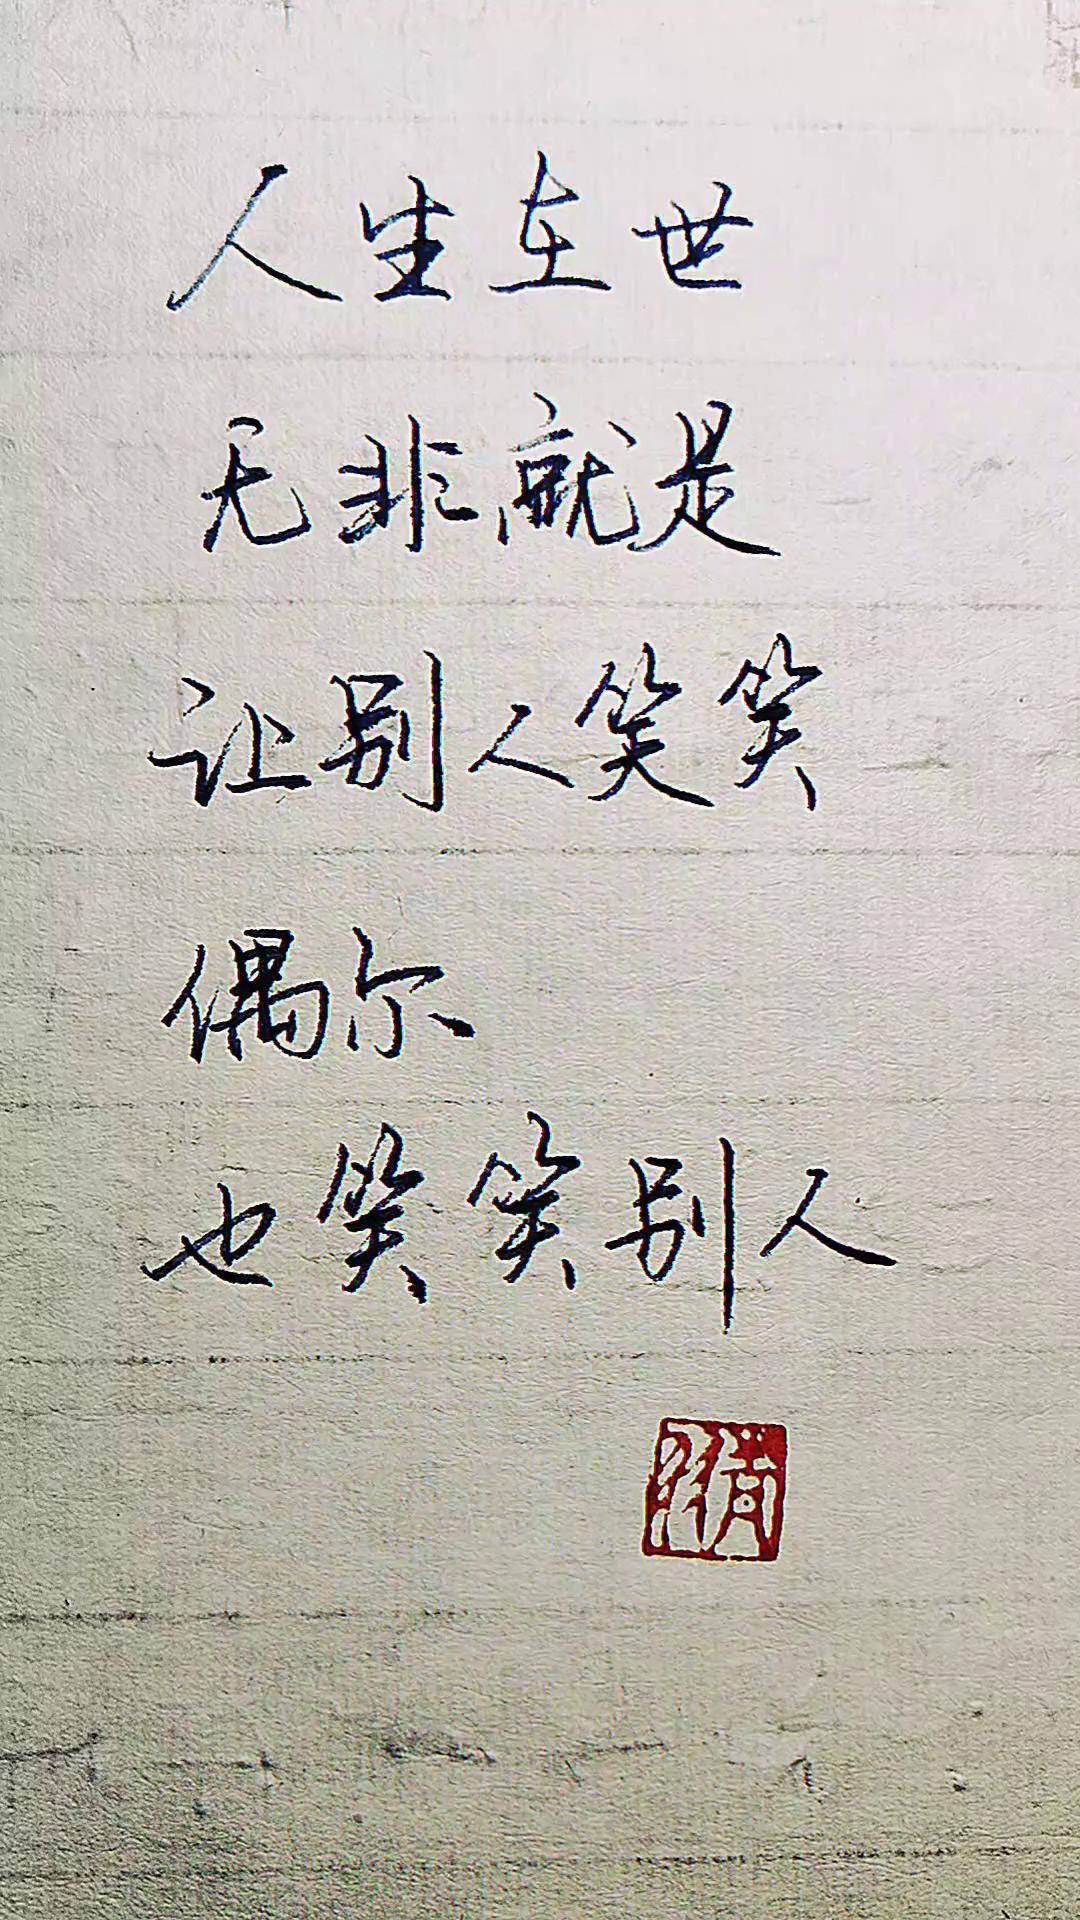 人生在世
无非就是
让别人笑笑
偶尔
也笑笑别人